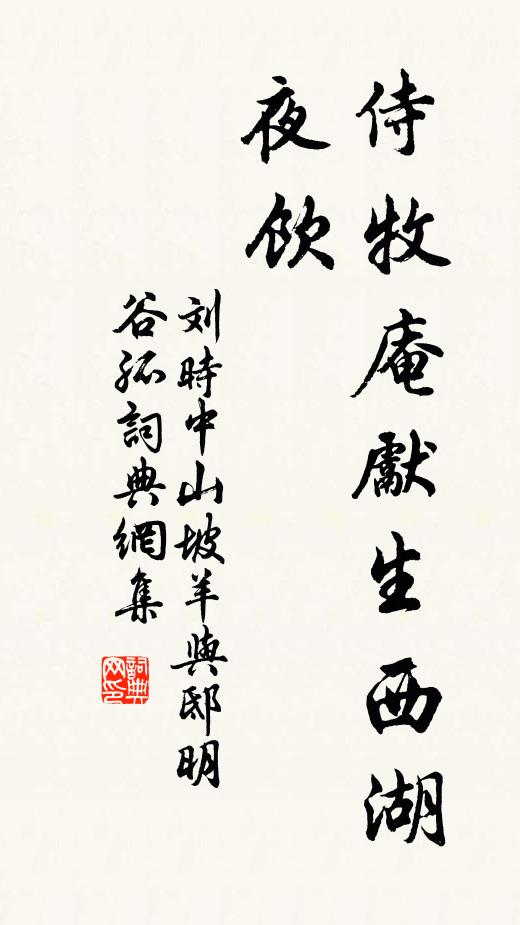 侍牧庵獻生西湖
夜飲
刘時中山坡羊與邸明
谷孤詞典網集
詞典
网印